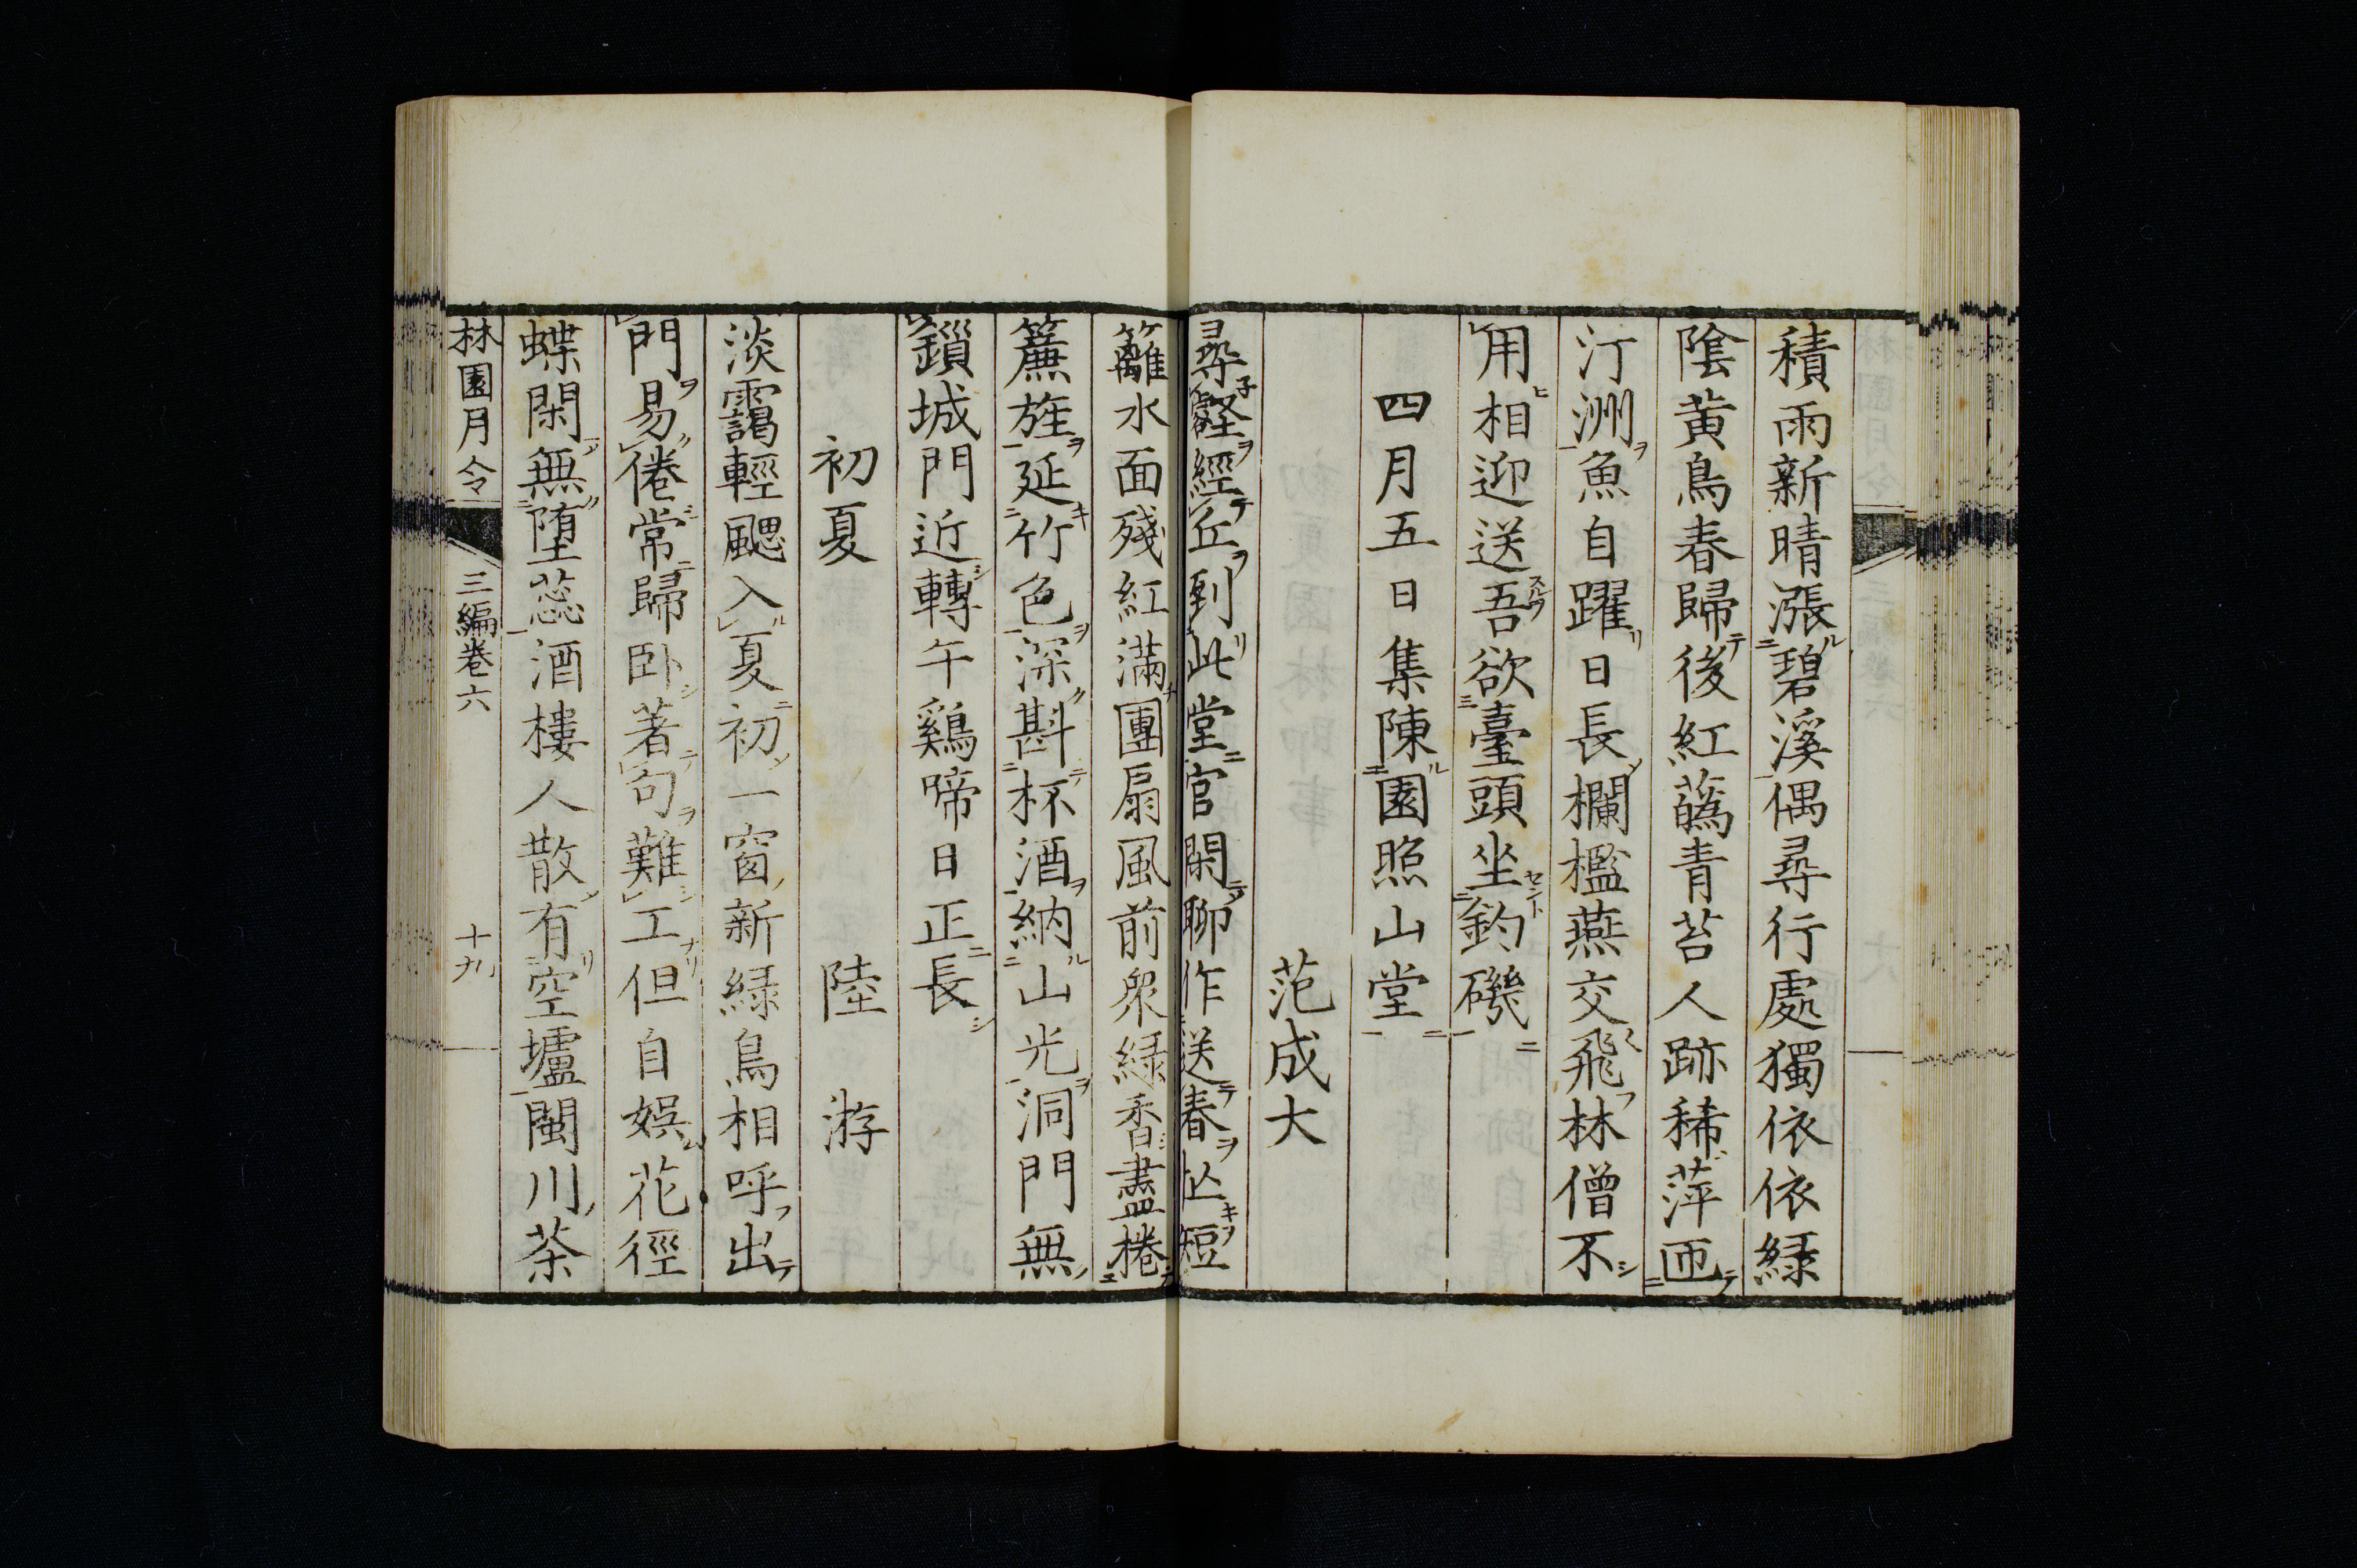 積雨新晴漲碧溪偶尋行處獨依依綠
陰黃鳥春歸後紅蘤青苔人跡稀萍匝
汀洲魚自躍日長欄檻燕交飛林僧不
用相迎送吾欲臺頭坐釣磯
四月五日集陳園照山堂
范成大
尋壑經丘到此堂官閑聊作送春忙短
籬水面殘紅滿團扇風前眾綠香盡捲
簾旌延竹色深斟杯酒納山光洞門無
鎖城門近轉午鷄啼日正長
初夏 陸游
淡靄輕颸入夏初一窗新綠鳥相呼出
門易倦常歸臥著句難工但自娛花徑
蝶閑無墮蕊酒樓人散有空壚閩川茶
林園月令 三編卷六 十九